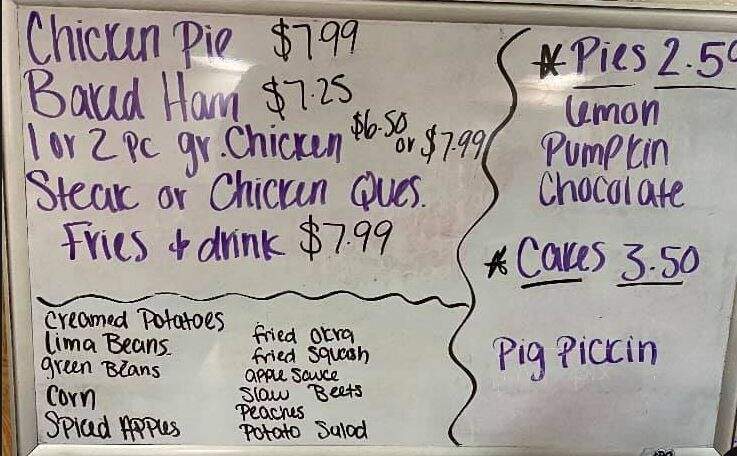 Chicken Pie $7.99
Baked Ham $7.25
1 or 2 pc gr. Chicken $6.50 or $7.99
Steak or Chicken Ques.
Fries + drink $7.99
Creamed Potatoes
Lima Beans
green Beans
Corn
Spiced Apples
fried okra
fried squash
apple sauce
Slaw Beets
Peaches
Potato Salad
* Pies 2.50
Lemon
Pumpkin
Chocolate
* Cakes 3.50
Pig Pickin